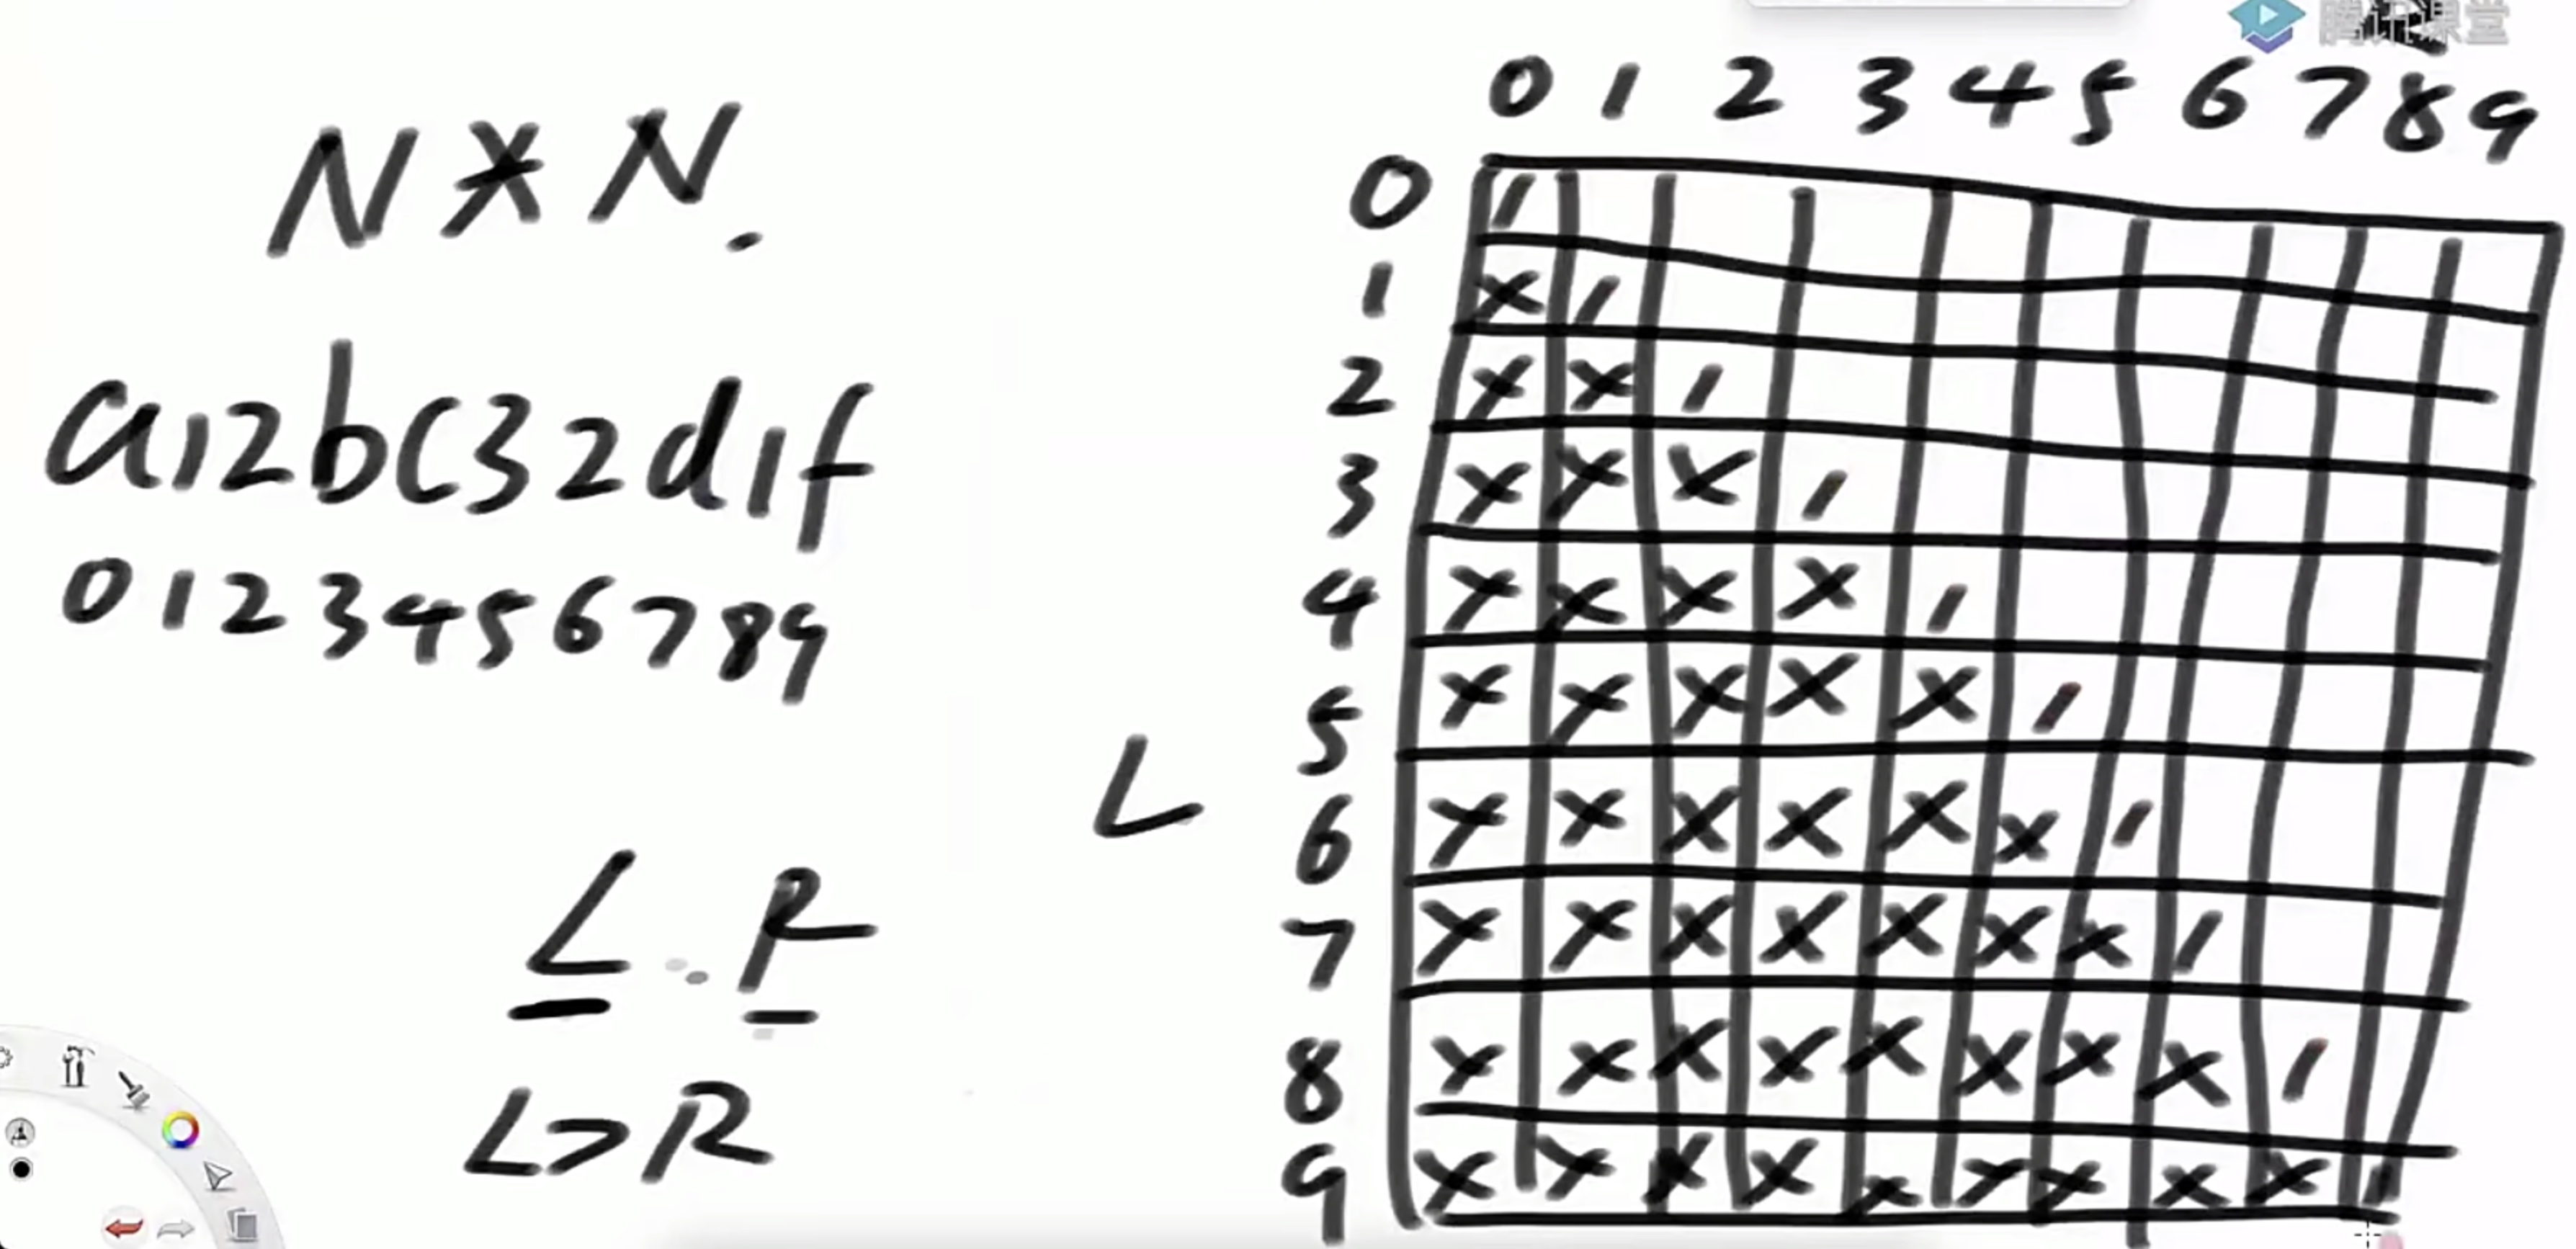 腾讯课堂
N * N.
a12bc32d1f
0123456789
L
L..R
L>R
0 1 2 3 4 5 6 7 8 9
0 1
1 x 1
2 x x 1
3 x x x 1
4 x x x x 1
5 x x x x x 1
6 x x x x x x 1
7 x x x x x x x 1
8 x x x x x x x x 1
9 x x x x x x x x x 1